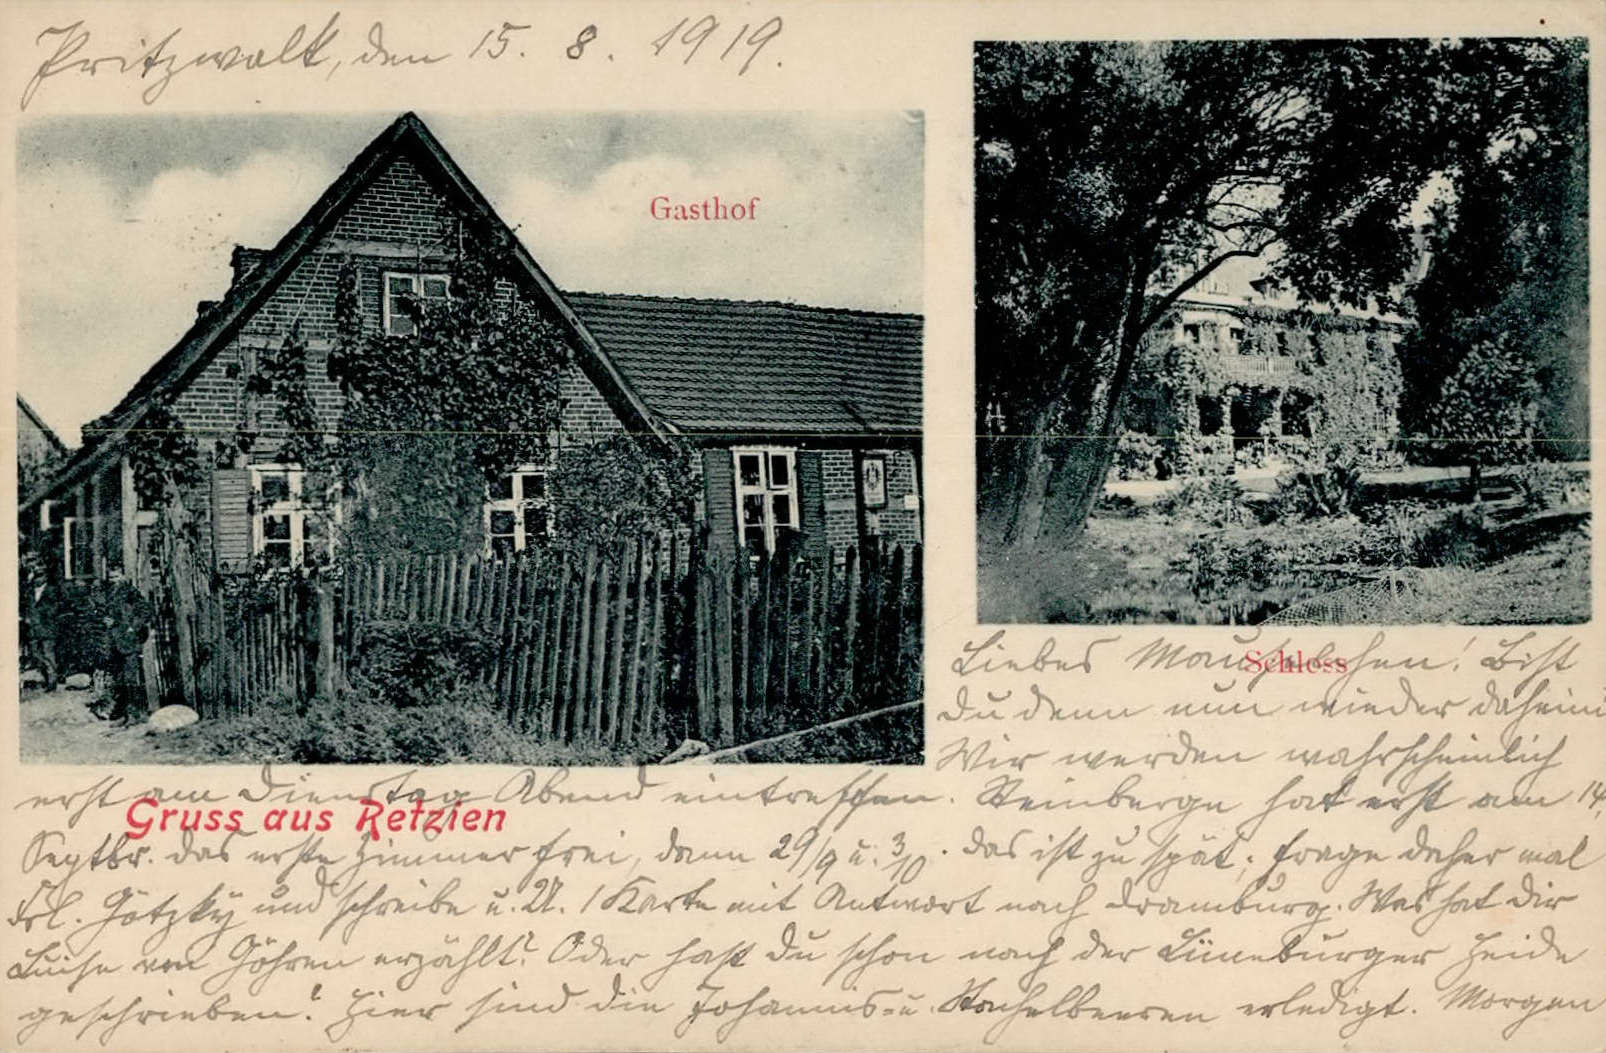 Pritzwalk, den 15. 8. 1919.
Gasthof
Schloss
Liebes Mauselchen! Bist
Du denn nun wieder daheim?
Wir werden wahrscheinlich
erst am Dienstag Abend eintreffen. Steinberge hat erst am 14.
Gruss aus Retzien
Septbr. das erste Zimmer frei, dann 29/9 u. 3/10. Das ist zu spät; frage daher mal
Frl. Götzky und schreibe u. U. 1 Karte mit Antwort nach Dramburg. Was hat Dir
Luise von Göhren erzählt? Oder hast Du schon nach der Lüneburger Heide
geschrieben? Hier sind die Johannis- u. Stachelbeeren erledigt. Morgen